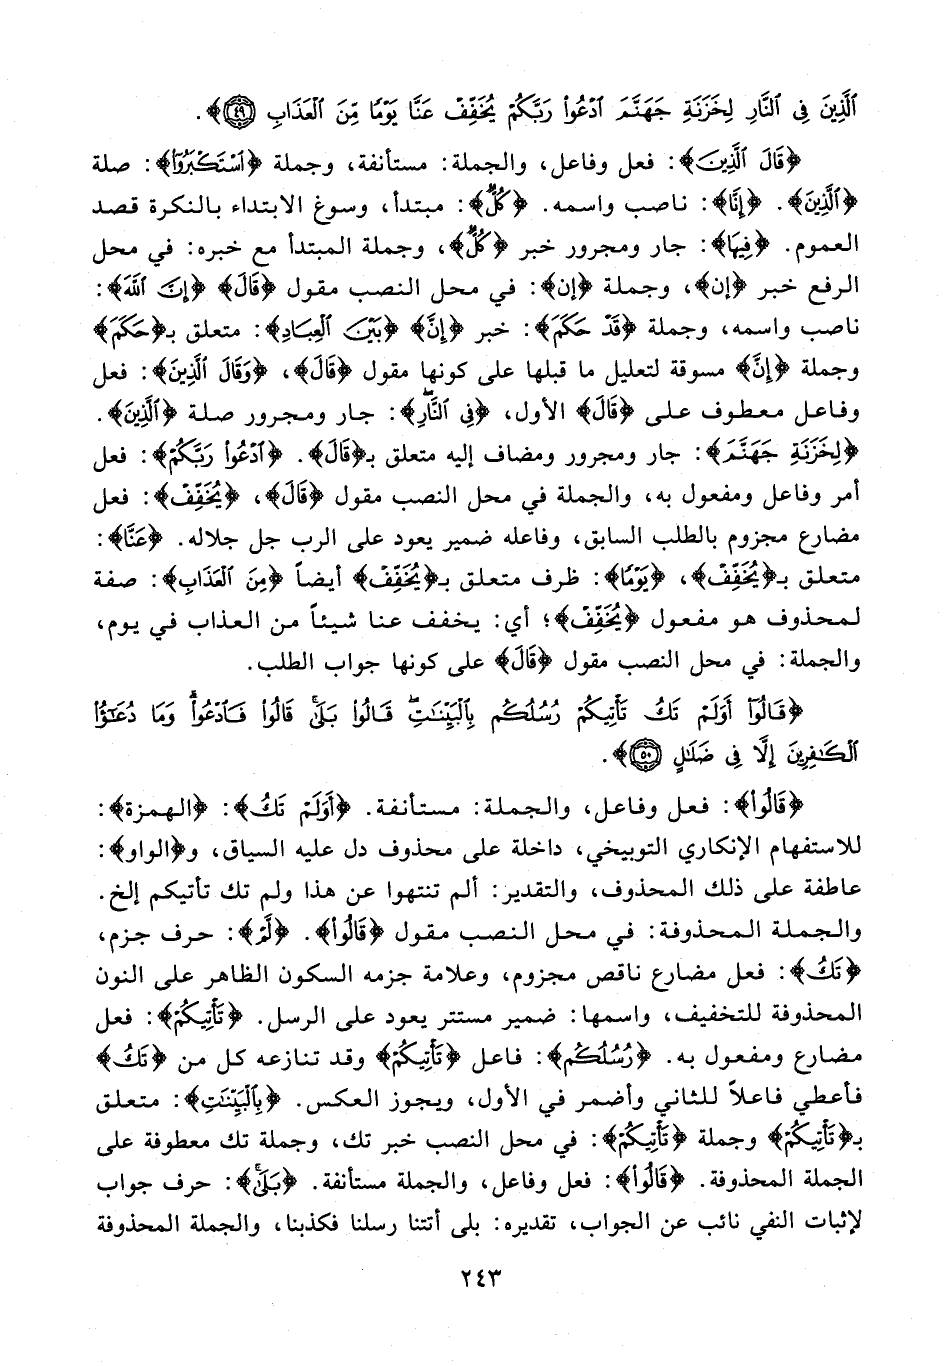 ٱلَّذِينَ فِي ٱلنَّارِ لِخَزَنَةِ جَهَنَّمَ ٱدْعُواْ رَبَّكُمْ يُخَفِّفْ عَنَّا يَوْمًا مِّنَ ٱلْعَذَابِ ﴿٤٩﴾﴾.
﴿قَالَ ٱلَّذِينَ﴾: فعل وفاعل، والجملة: مستأنفة، وجملة ﴿ٱسْتَكْبَرُوٓاْ﴾: صلة
﴿ٱلَّذِينَ﴾. ﴿إِنَّا﴾: ناصب واسمه. ﴿كُلٌّ﴾: مبتدأ، وسوغ الابتداء بالنكرة قصد
العموم. ﴿فِيهَا﴾: جار ومجرور خبر ﴿كُلٌّ﴾، وجملة المبتدأ مع خبره: في محل
الرفع خبر ﴿إن﴾، وجملة ﴿إن﴾: في محل النصب مقول ﴿قَالَ﴾ ﴿إِنَّ ٱللَّهَ﴾:
ناصب واسمه، وجملة ﴿قَدْ حَكَمَ﴾: خبر ﴿إِنَّ﴾ ﴿بَيْنَ ٱلْعِبَادِ﴾: متعلق بـ﴿حَكَمَ﴾
وجملة ﴿إِنَّ﴾ مسوقة لتعليل ما قبلها على كونها مقول ﴿قَالَ﴾، ﴿وَقَالَ ٱلَّذِينَ﴾: فعل
وفاعل معطوف على ﴿قَالَ﴾ الأول، ﴿فِي ٱلنَّارِ﴾: جار ومجرور صلة ﴿ٱلَّذِينَ﴾.
﴿لِخَزَنَةِ جَهَنَّمَ﴾: جار ومجرور ومضاف إليه متعلق بـ﴿قَالَ﴾. ﴿ٱدْعُواْ رَبَّكُمْ﴾: فعل
أمر وفاعل ومفعول به، والجملة في محل النصب مقول ﴿قَالَ﴾، ﴿يُخَفِّفْ﴾: فعل
مضارع مجزوم بالطلب السابق، وفاعله ضمير يعود على الرب جل جلاله. ﴿عَنَّا﴾:
متعلق بـ﴿يُخَفِّفْ﴾، ﴿يَوْمًا﴾: ظرف متعلق بـ﴿يُخَفِّفْ﴾ أيضاً ﴿مِنَ ٱلْعَذَابِ﴾: صفة
لمحذوف هو مفعول ﴿يُخَفِّفْ﴾؛ أي: يخفف عنا شيئاً من العذاب في يوم،
والجملة: في محل النصب مقول ﴿قَالَ﴾ على كونها جواب الطلب.
﴿قَالُوٓاْ أَوَلَمْ تَكُ تَأْتِيكُمْ رُسُلُكُم بِٱلْبَيِّنَٰتِ ۖ قَالُواْ بَلَىٰ ۚ قَالُواْ فَٱدْعُواْ ۗ وَمَا دُعَٰٓؤُاْ
ٱلْكَٰفِرِينَ إِلَّا فِي ضَلَٰلٍ ﴿٥٠﴾﴾.
﴿قَالُواْ﴾: فعل وفاعل، والجملة: مستأنفة. ﴿أَوَلَمْ تَكُ﴾: ﴿الهمزة﴾:
للاستفهام الإنكاري التوبيخي، داخلة على محذوف دل عليه السياق، و﴿الواو﴾:
عاطفة على ذلك المحذوف، والتقدير: ألم تنتهوا عن هذا ولم تك تأتيكم إلخ.
والجملة المحذوفة: في محل النصب مقول ﴿قَالُواْ﴾. ﴿لَمْ﴾: حرف جزم،
﴿تَكُ﴾: فعل مضارع ناقص مجزوم، وعلامة جزمه السكون الظاهر على النون
المحذوفة للتخفيف، واسمها: ضمير مستتر يعود على الرسل. ﴿تَأْتِيكُمْ﴾: فعل
مضارع ومفعول به. ﴿رُسُلُكُم﴾: فاعل ﴿تَأْتِيكُمْ﴾ وقد تنازعه كل من ﴿تَكُ﴾
فأعطي فاعلاً للثاني وأضمر في الأول، ويجوز العكس. ﴿بِٱلْبَيِّنَٰتِ﴾: متعلق
بـ﴿تَأْتِيكُمْ﴾ وجملة ﴿تَأْتِيكُمْ﴾: في محل النصب خبر تك، وجملة تك معطوفة على
الجملة المحذوفة. ﴿قَالُواْ﴾: فعل وفاعل، والجملة مستأنفة. ﴿بَلَىٰ﴾: حرف جواب
لإثبات النفي نائب عن الجواب، تقديره: بلى أتتنا رسلنا فكذبنا، والجملة المحذوفة
٢٤٣